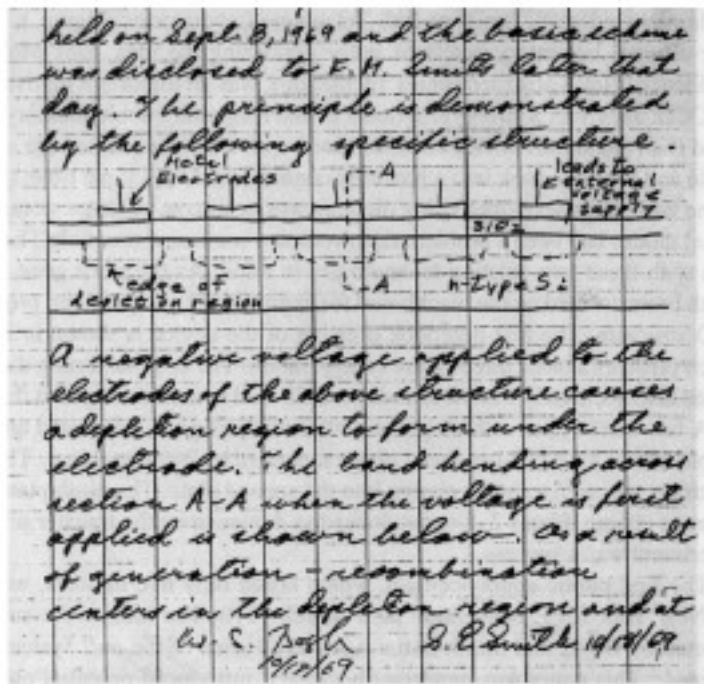 held on Sept. 8, 1969 and the basic scheme
was disclosed to F. M. Smits later that
day. The principle is demonstrated
by the following specific structure.
Metal
Electrodes
A
leads to
external
voltage
supply
SiO2
edge of
depletion region
A
n-type Si
A negative voltage applied to the
electrodes of the above structure causes
a depletion region to form under the
electrode. The band bending across
section A-A when the voltage is first
applied is shown below. As a result
of generation - recombination
centers in the depletion region and at
W. S. Boyle G. E. Smith 10/18/69
10/17/69